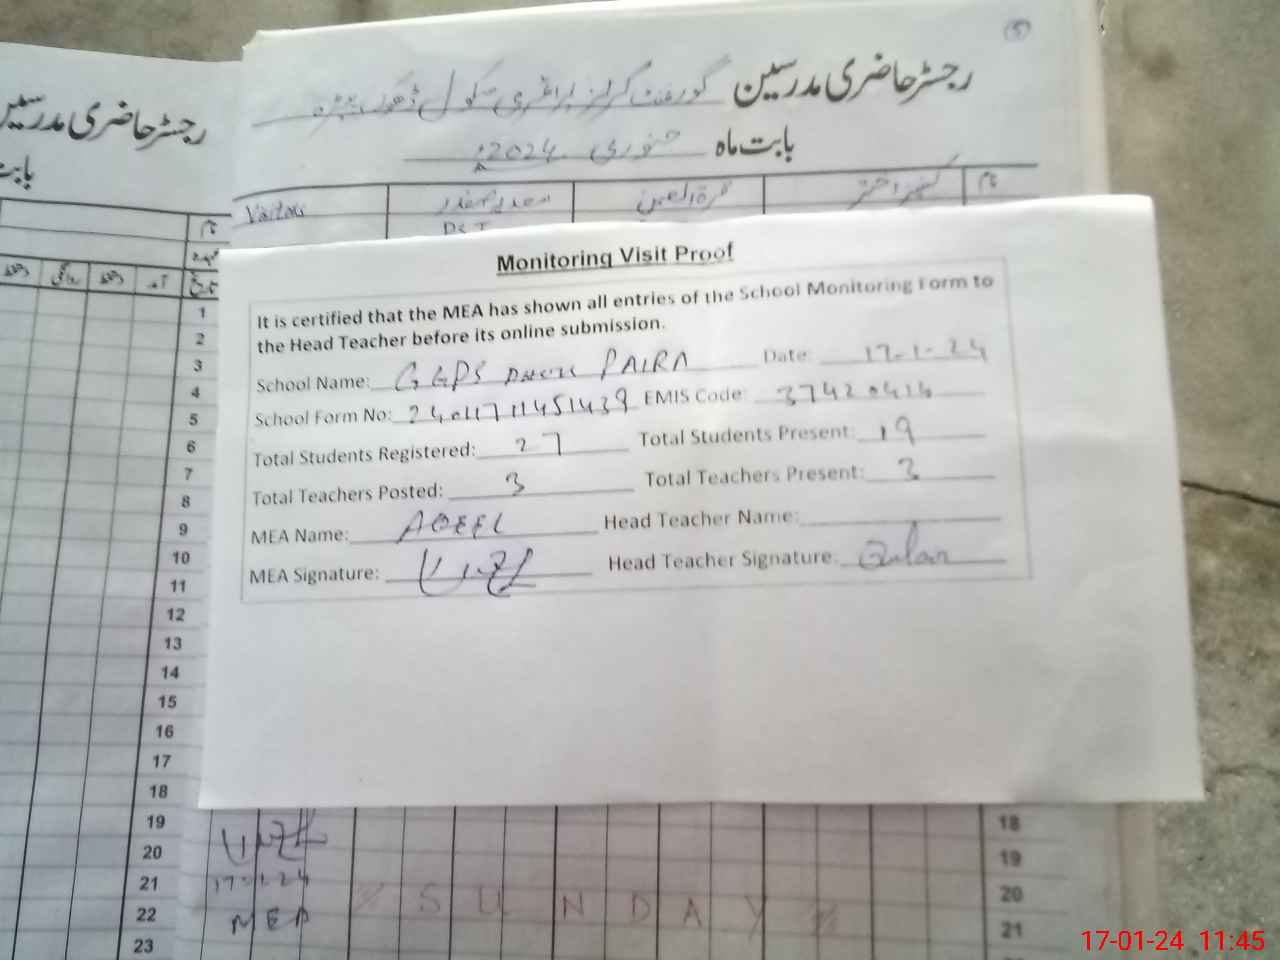 رجسٹر حاضری مدرسین گورنمنٹ گرلز پرائمری سکول ڈھوک پیڑہ
بابت ماہ جنوری 2024ء
Visitors
نام
PST
رجسٹر حاضری مدرسین
بابت
نام
Monitoring Visit Proof
It is certified that the MEA has shown all entries of the School Monitoring Form to
the Head Teacher before its online submission.
School Name: GGPS DHOK PAIRA Date: 17-1-24
School Form No: 2401171145143 9 EMIS Code: 37420414
Total Students Registered: 27 Total Students Present: 19
Total Teachers Posted: 3 Total Teachers Present: 3
MEA Name: AQEEL Head Teacher Name:
MEA Signature: Head Teacher Signature:
1
2
3
4
5
6
7
8
9
10
11
12
13
14
15
16
17
18
19
20
21
22
23
17-1-24
MEA
SUNDAY
18
19
20
21
17-01-24 11:45